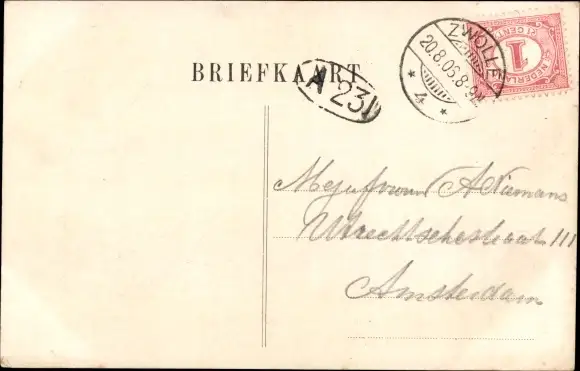 BRIEFKAART
A 23
ZWOLLE
20.8.06.8-9V.
4
NEDERLAND
1
CENT
Mejufvrouw A Niemans
Utrechtschestraat 111
Amsterdam